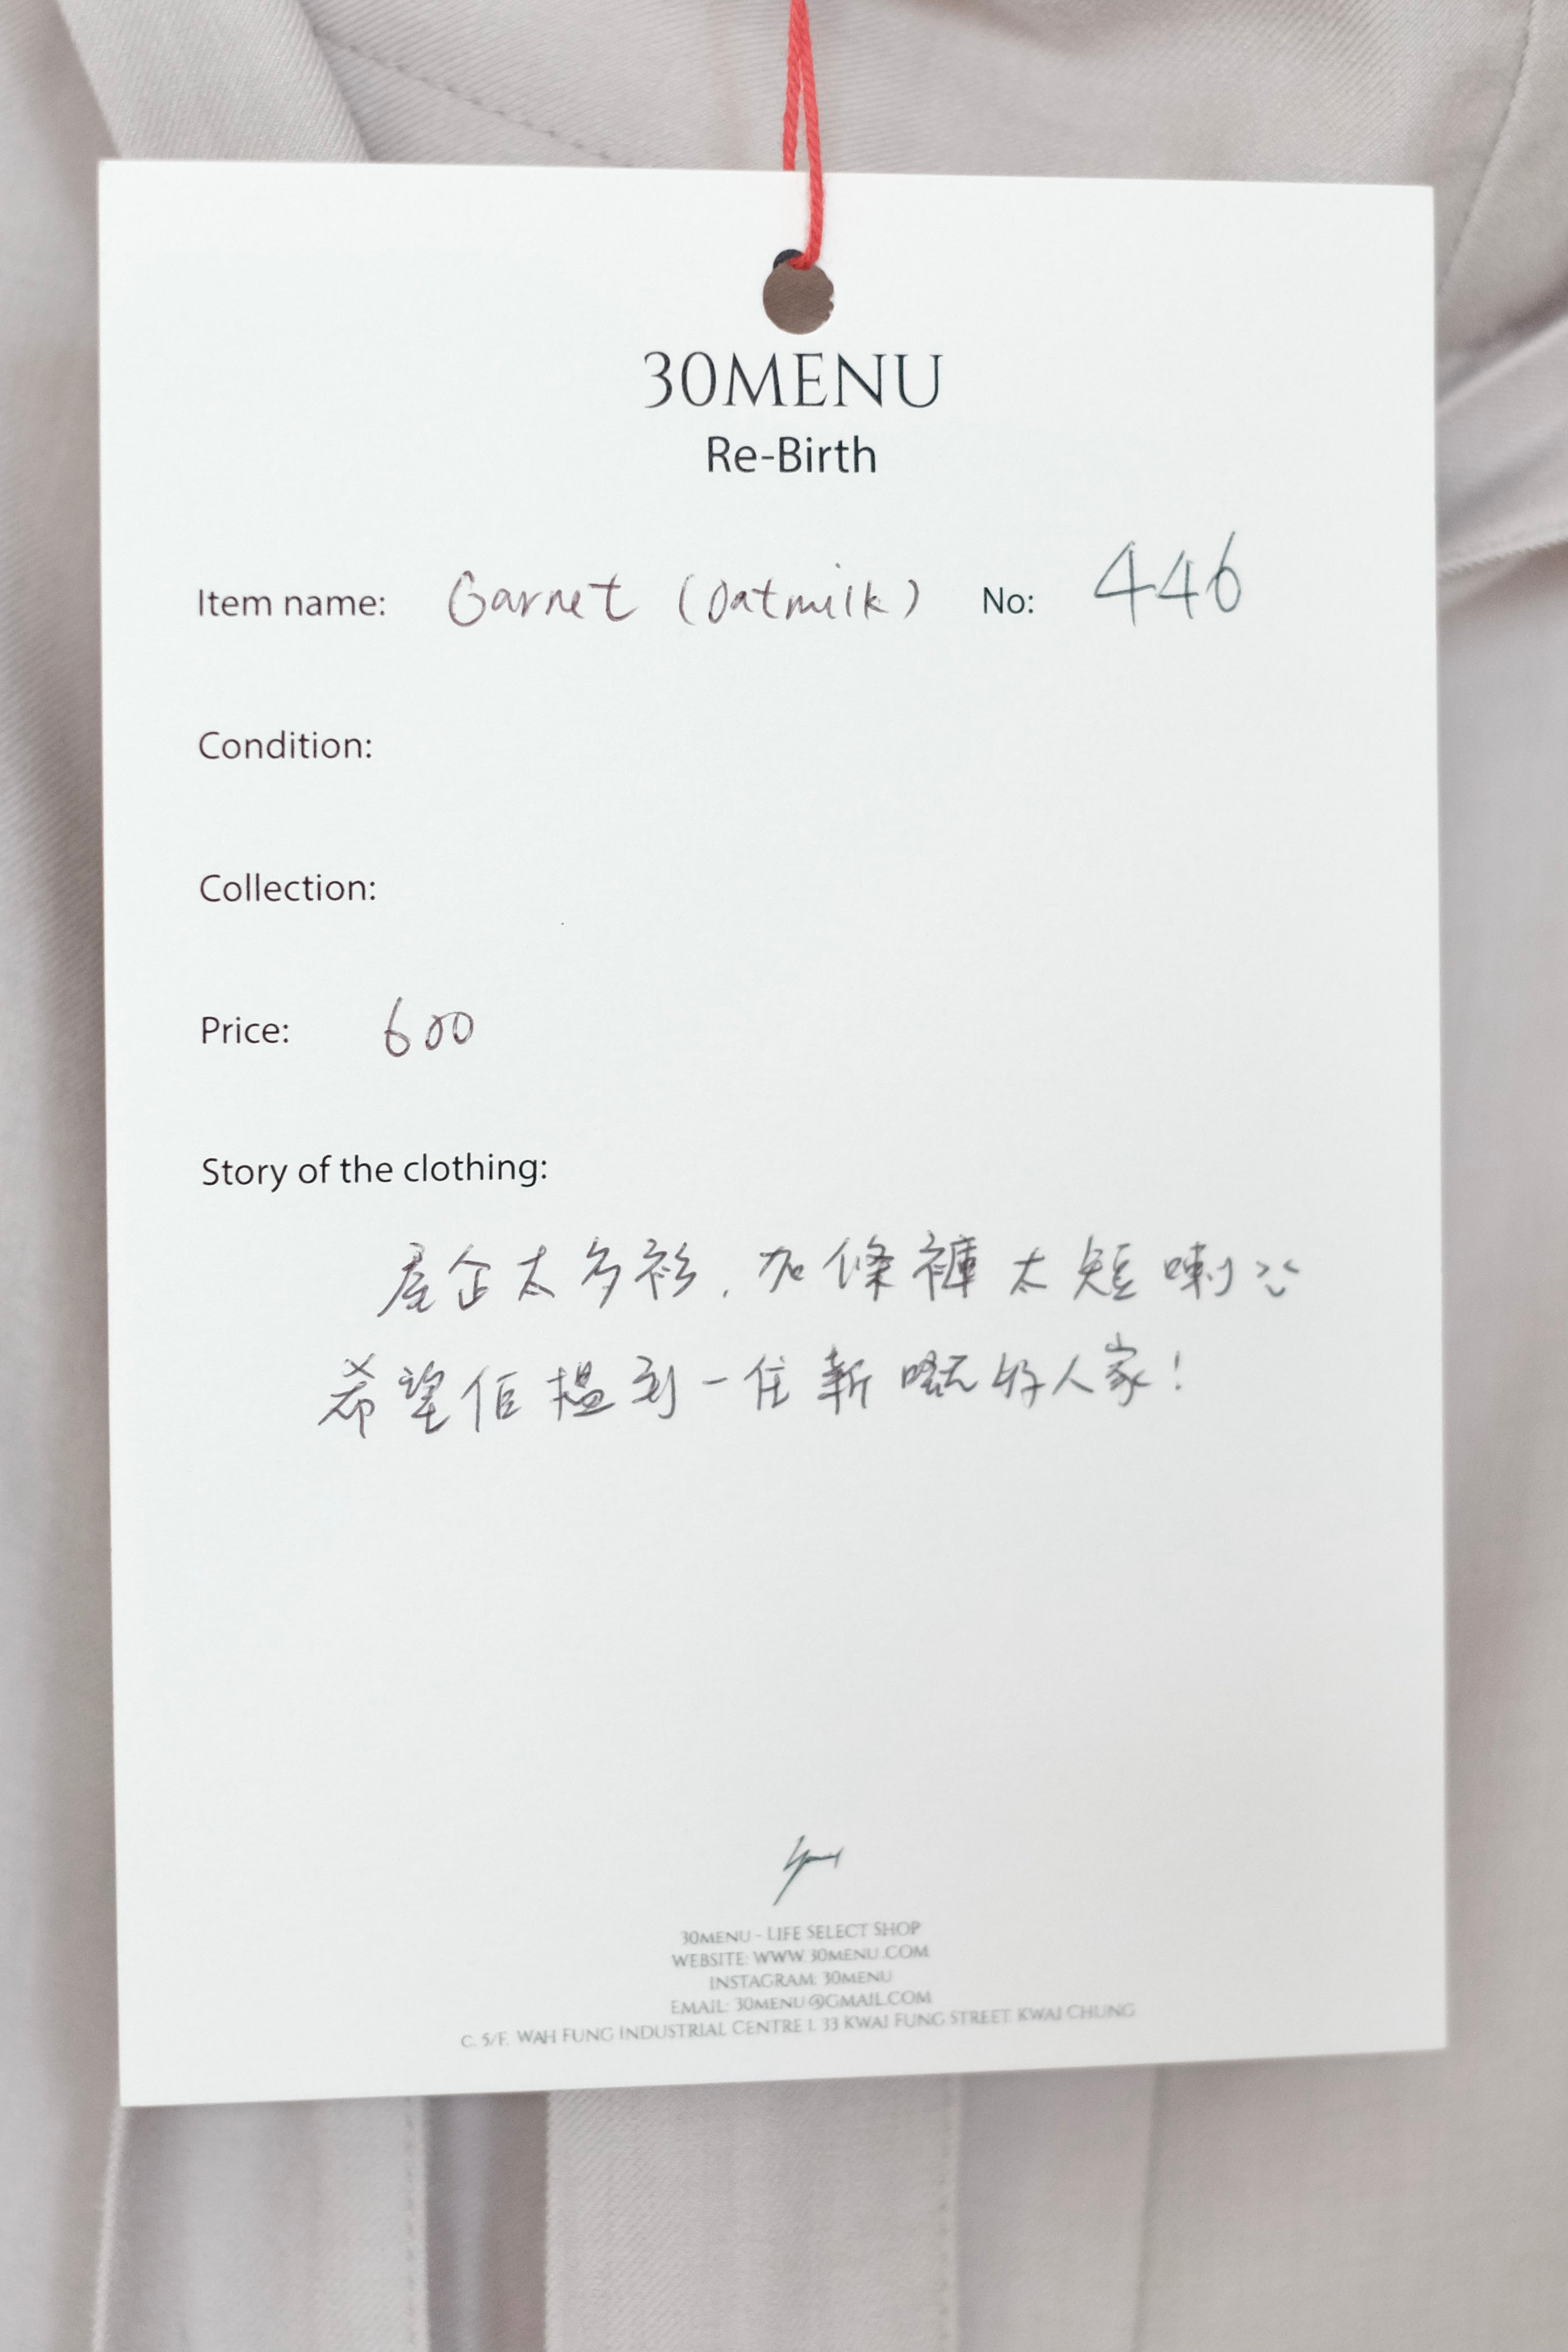 30MENU
Re-Birth
Item name: Garnet (Oatmilk) No: 446
Condition:
Collection:
Price: 600
Story of the clothing:
屋企太多衫, 加條褲太短喇
希望佢搵到一住新嘅好人家!
30MENU - LIFE SELECT SHOP
WEBSITE: WWW.30MENU.COM
INSTAGRAM: 30MENU
EMAIL: 30MENU@GMAIL.COM
C, 5/F, WAH FUNG INDUSTRIAL CENTRE 1, 33 KWAI FUNG STREET, KWAI CHUNG